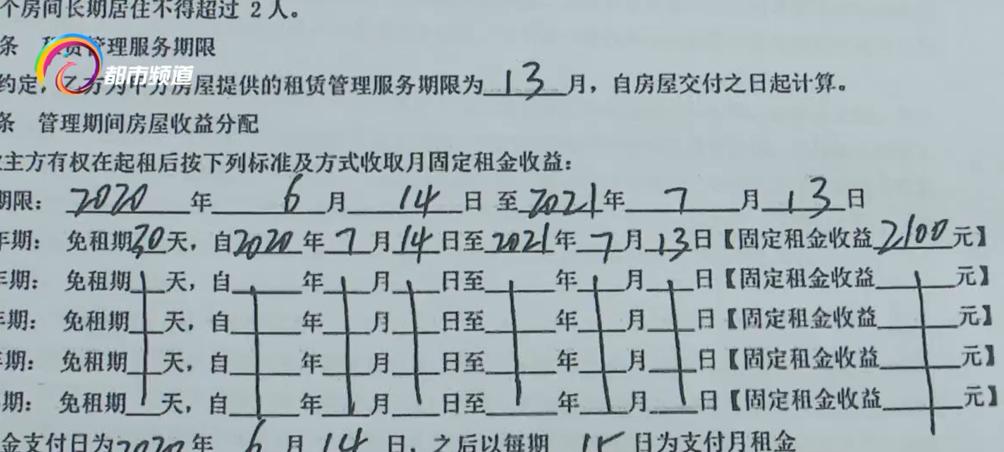 个房间长期居住不得超过 2 人。
条 租赁管理服务期限
都市频道
约定，乙方为甲方房屋提供的租赁管理服务期限为 13 月，自房屋交付之日起计算。
条 管理期间房屋收益分配
主方有权在起租后按下列标准及方式收取月固定租金收益：
期限： 2020 年 6 月 14 日 至 2021 年 7 月 13 日
年期： 免租期 30 天，自 2020 年 7 月 14 日至 2021 年 7 月 13 日【固定租金收益 2100 元】
年期： 免租期 天，自 年 月 日至 年 月 日【固定租金收益 元】
年期： 免租期 天，自 年 月 日至 年 月 日【固定租金收益 元】
年期： 免租期 天，自 年 月 日至 年 月 日【固定租金收益 元】
期： 免租期 天，自 年 月 日至 年 月 日【固定租金收益 元】
金支付日为 2020 年 6 月 14 日，之后以每期 15 日为支付月租金